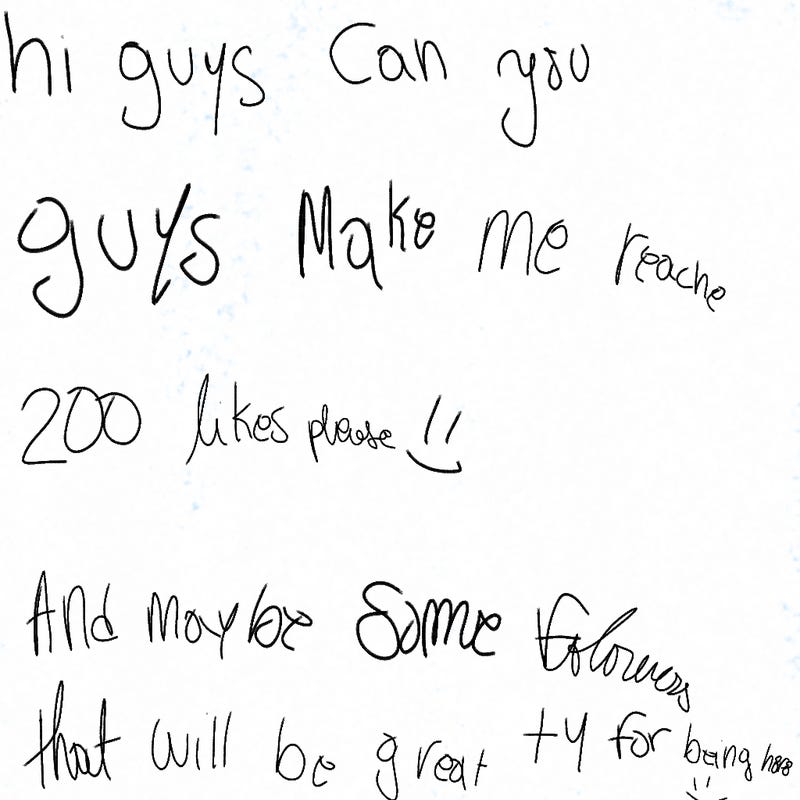 hi guys Can you
guys Make me reache
200 likes please
And maybe some folowers
that will be great ty for being here